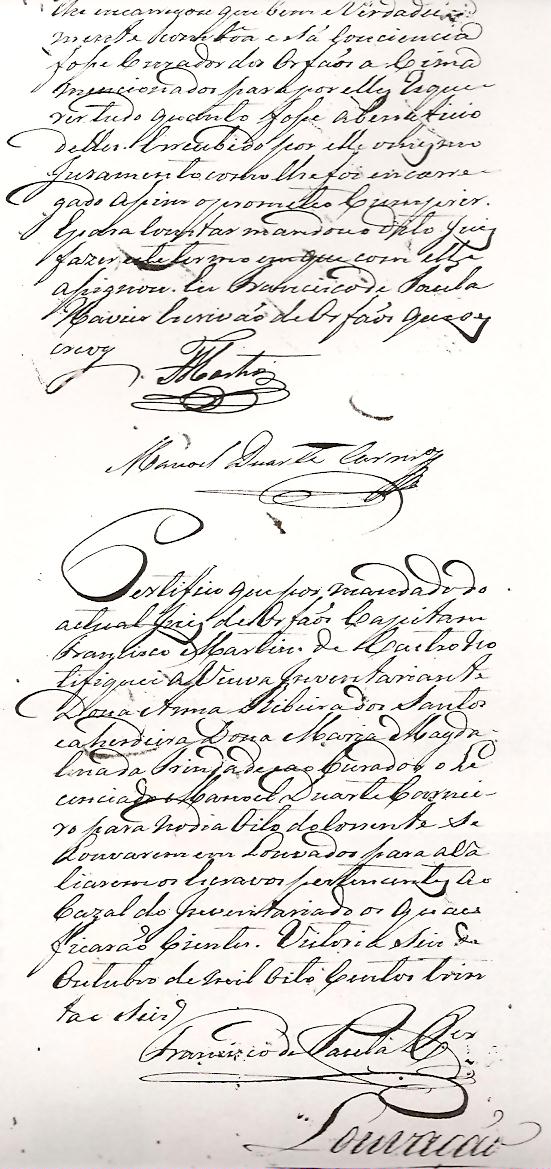 lhe encarregou que bem e Verdadeira
mente com bôa e Sã Conciencia
fosse Curador dos Orfãos a Cima
mencionados para por elles Reque-
rer tudo quanto fosse a beneficio
delles. E recebido por elle o mesmo
Juramento como lhe foi encarre
gado assim o prometteo Cumprir.
E para Constar mandou o dito Juiz
fazer este termo em que com elle
assignou. Eu Francisco de Paula
Xavier Escrivão de Orfãos que o es
crevy
Manoel Duarte Carneiro
Certifico que por mandado do
actual Juiz de Orfãos Capitam
Francisco Martins de Castro no
tifiquei a Viuva Inventariante
Dona Anna Ribeira dos Santos
e a herdeira Dona Maria Magda-
lena da Trindade e ao Curador o Li
cenciado Manoel Duarte Carnei-
ro para no dia Oito do Corrente se
Louvarem em Louvados para ava
liarem os Escravos pertencentes ao
Cazal do Inventariado os quaes
ficarão Cientes. Victoria Seis de
Outubro de mil Oito Centos trin
ta e Seis
Francisco de Paula Xer
Louvação